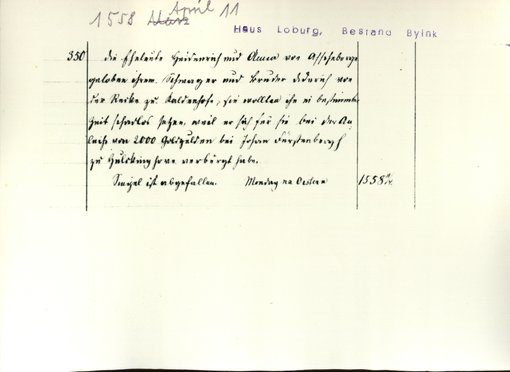 1558 März April 11
Haus Loburg, Bestand Byink
350 Die Eheleute Heidenreich und Anna von Asseheberge
geloben ihrem Schwager und Bruder Diderich von
der Recke zu Kaldenhofe, sie wollten ihn in bestimmter
Zeit schadlos setzen, weil er sich für sie bei der An
leihe von 2000 Goldgulden bei Johan Fürstenbergh
zu verbürgt habe.
Siegel ist abgefallen. Mondag na Oestern 1558